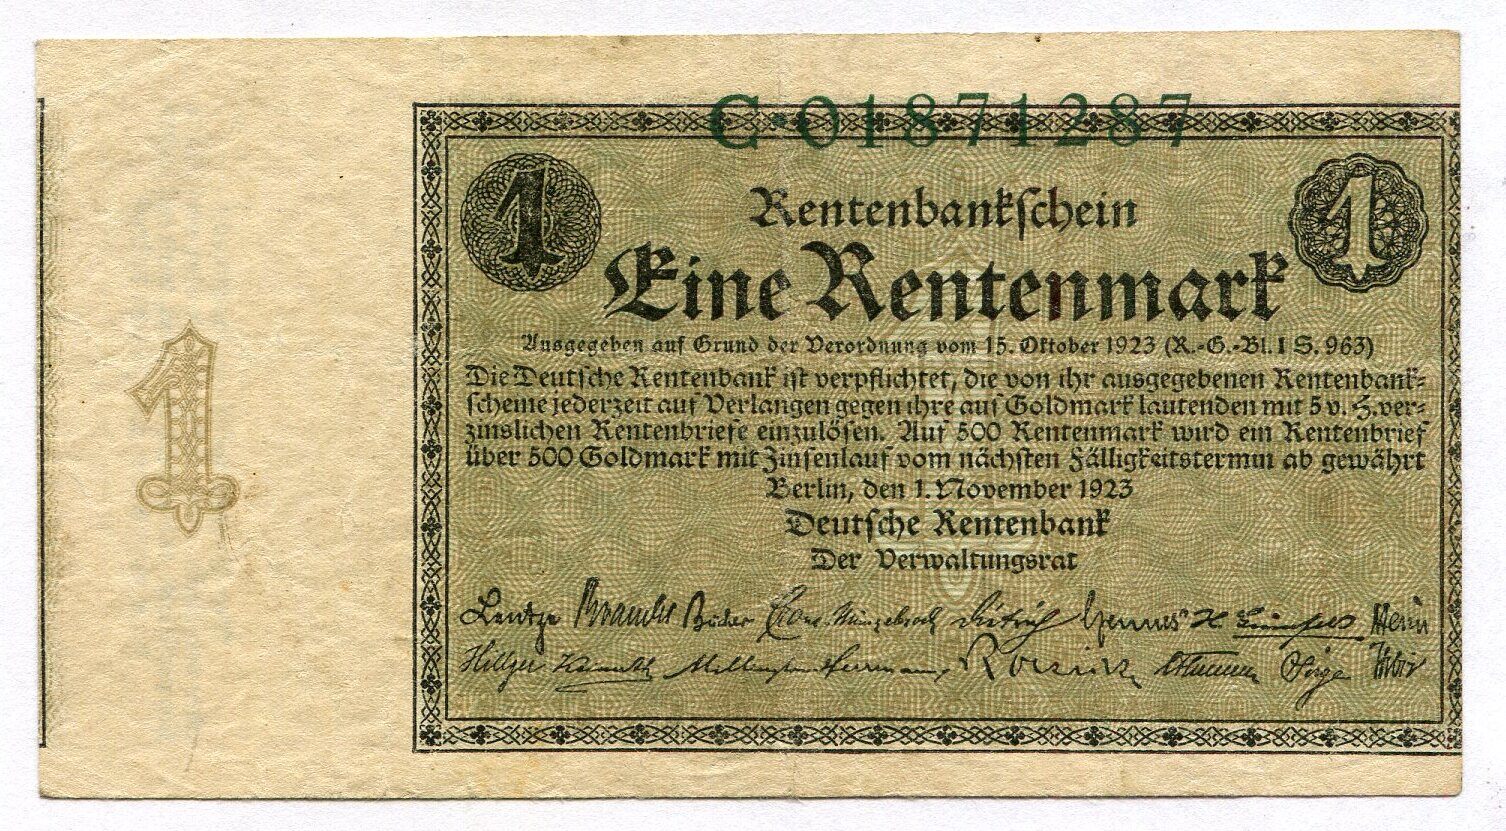 C·01871287
1 1
Rentenbankschein
Eine Rentenmark
Ausgegeben auf Grund der Verordnung vom 15. Oktober 1923 (R.-G.-Bl. I S. 963)
Die Deutsche Rentenbank ist verpflichtet, die von ihr ausgegebenen Rentenbank=
scheine jederzeit auf Verlangen gegen ihre auf Goldmark lautenden mit 5 v. H. ver=
zinslichen Rentenbriefe einzulösen. Auf 500 Rentenmark wird ein Rentenbrief
über 500 Goldmark mit Zinsenlauf vom nächsten Fälligkeitstermin ab gewährt
Berlin, den 1. November 1923
Deutsche Rentenbank
Der Verwaltungsrat
Lentze Brandes Bücher Crone-Münzebrock Dietrich Hennes
Hillger Kanuth Herrmann
1